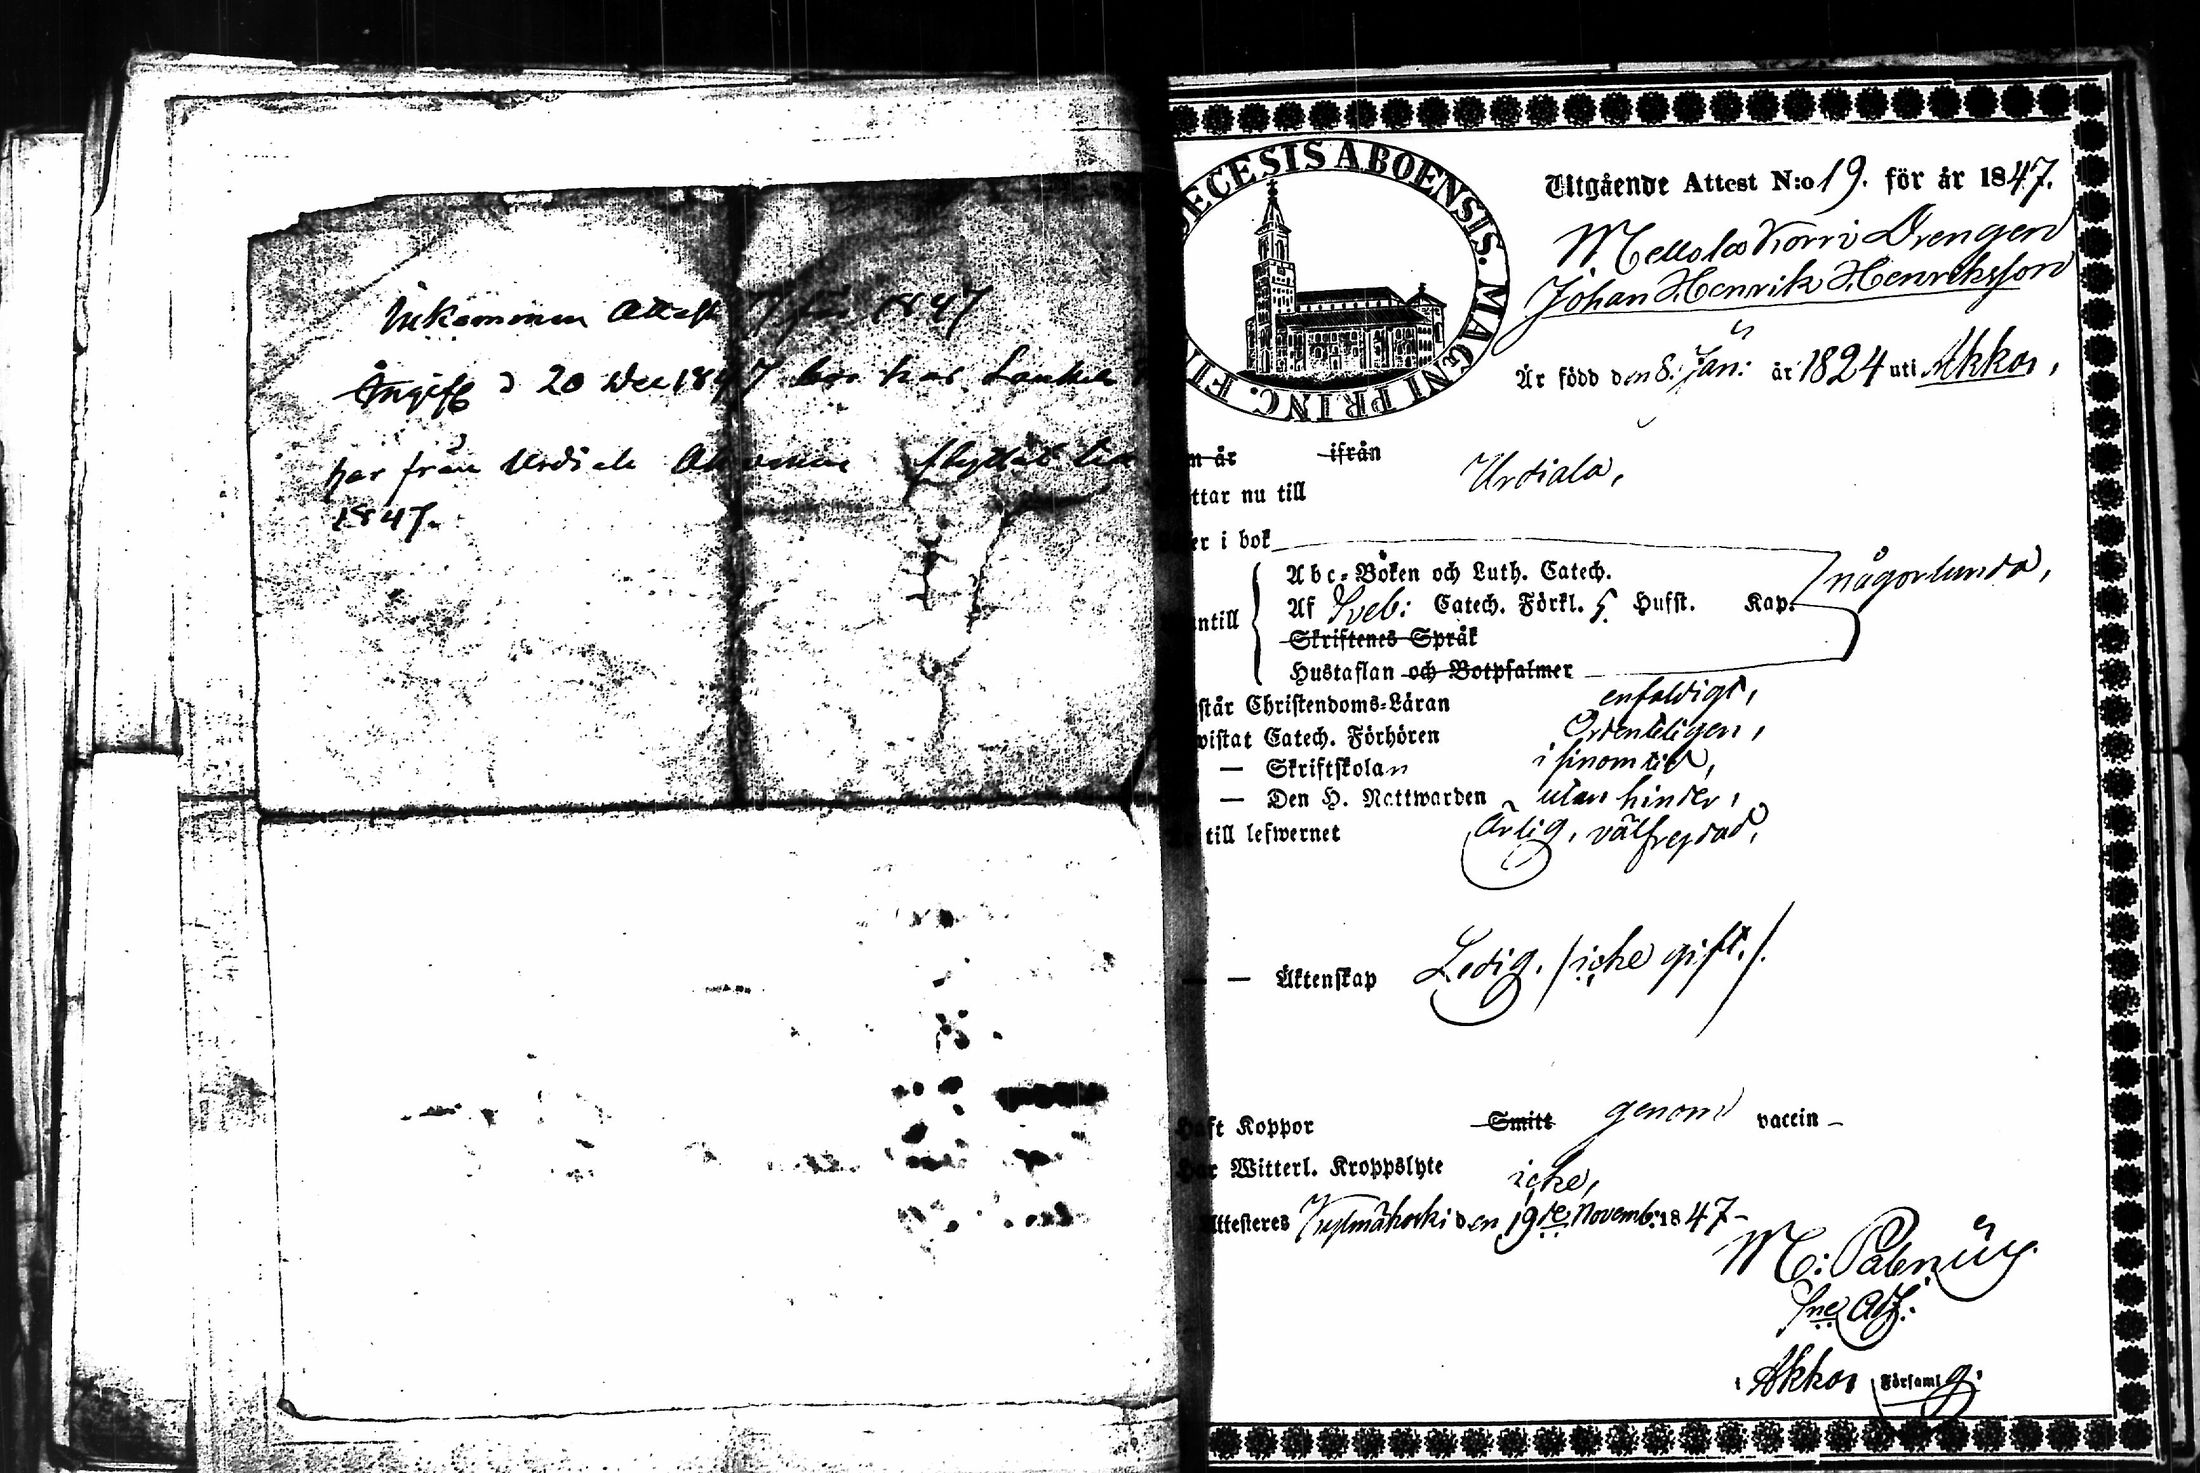 Inkommen Attest 7 för 1847
Angifv d 20 Dec 1847 bor hos
har från Urdiala flyttat
1847.
DECESIS ABOENSIS. MAGNI PRINC. FIN
Utgående Attest N:o 19. för år 1847.
Mellola Korri Drengen
Johan Henrik Henriksson
Är född den 8. Jan: år 1824 uti Akkas,
n år ifrån
ttar nu till Urdiala,
er i bok
någorlunda,
Abc-Boken och Luth. Catech.
Af Sveb: Catech. Förkl. 5. Hufst. Kap.
ntill
Skriftenes Språk
Hustaflan och Botpsalmer
står Christendoms-Läran enfaldigt,
vistat Catech. Förhören Ordenteligen,
— Skriftskolan i sinom tid,
— Den H. Nattwarden utan hinder,
till lefwernet Ärlig, välfrejdad,
— — Äktenskap Ledig. /icke gift./
Haft Koppor Smitt genom vaccin –
Har Witterl. Kroppslyte icke,
Attesteres Kylmäkoski den 19de Novemb: 1847–
M: Palen
Sne Adj:
i Akkas Församlg.